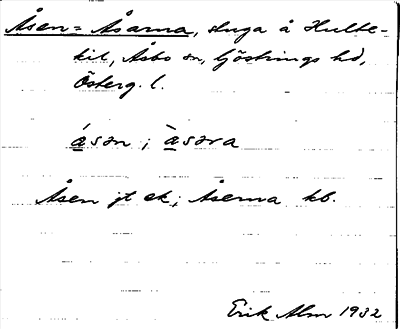 Åsen = Åsarna, stuga å Hulte-
kil, Åsbo sn, Göstrings hd,
Österg. l.
ásən ; àsəra
Åsen jt ek; Åserna kb.
Erik Alm 1932